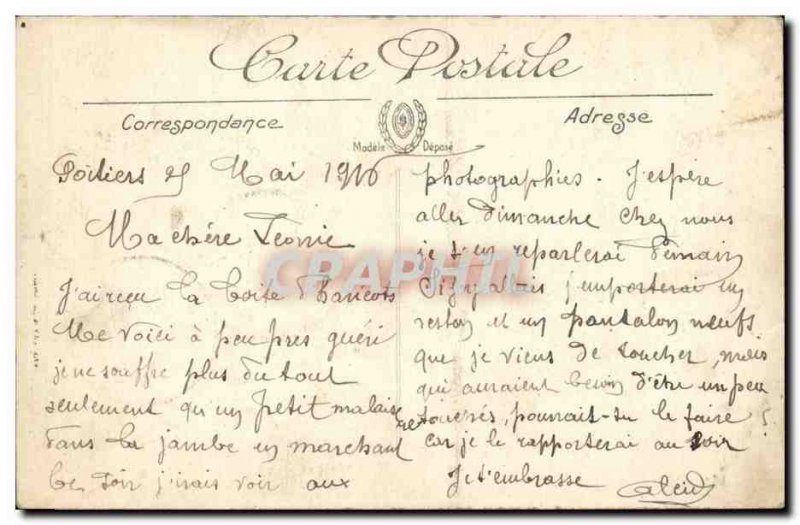 Carte Postale
Correspondance
Adresse
Modèle Déposé
Poitiers 25 Mai 1916
Ma chère Leonie
J'ai reçu la boite d'haricots
Me voici à peu près guéri
je ne souffre plus du tout
seulement qu'un petit malaise
dans la jambe en marchant
Ce soir j'irais voir aux
photographies - J'espère
aller dimanche chez nous
je t'en reparlerai demain
Si j'y j'emporterai un
veston et un pantalon neufs
que je viens de toucher, mais
qui auraient besoin d'être un peu
retouchés, pourrait-tu le faire
car je le rapporterai au soir
Je t'embrasse
CPAPHIL